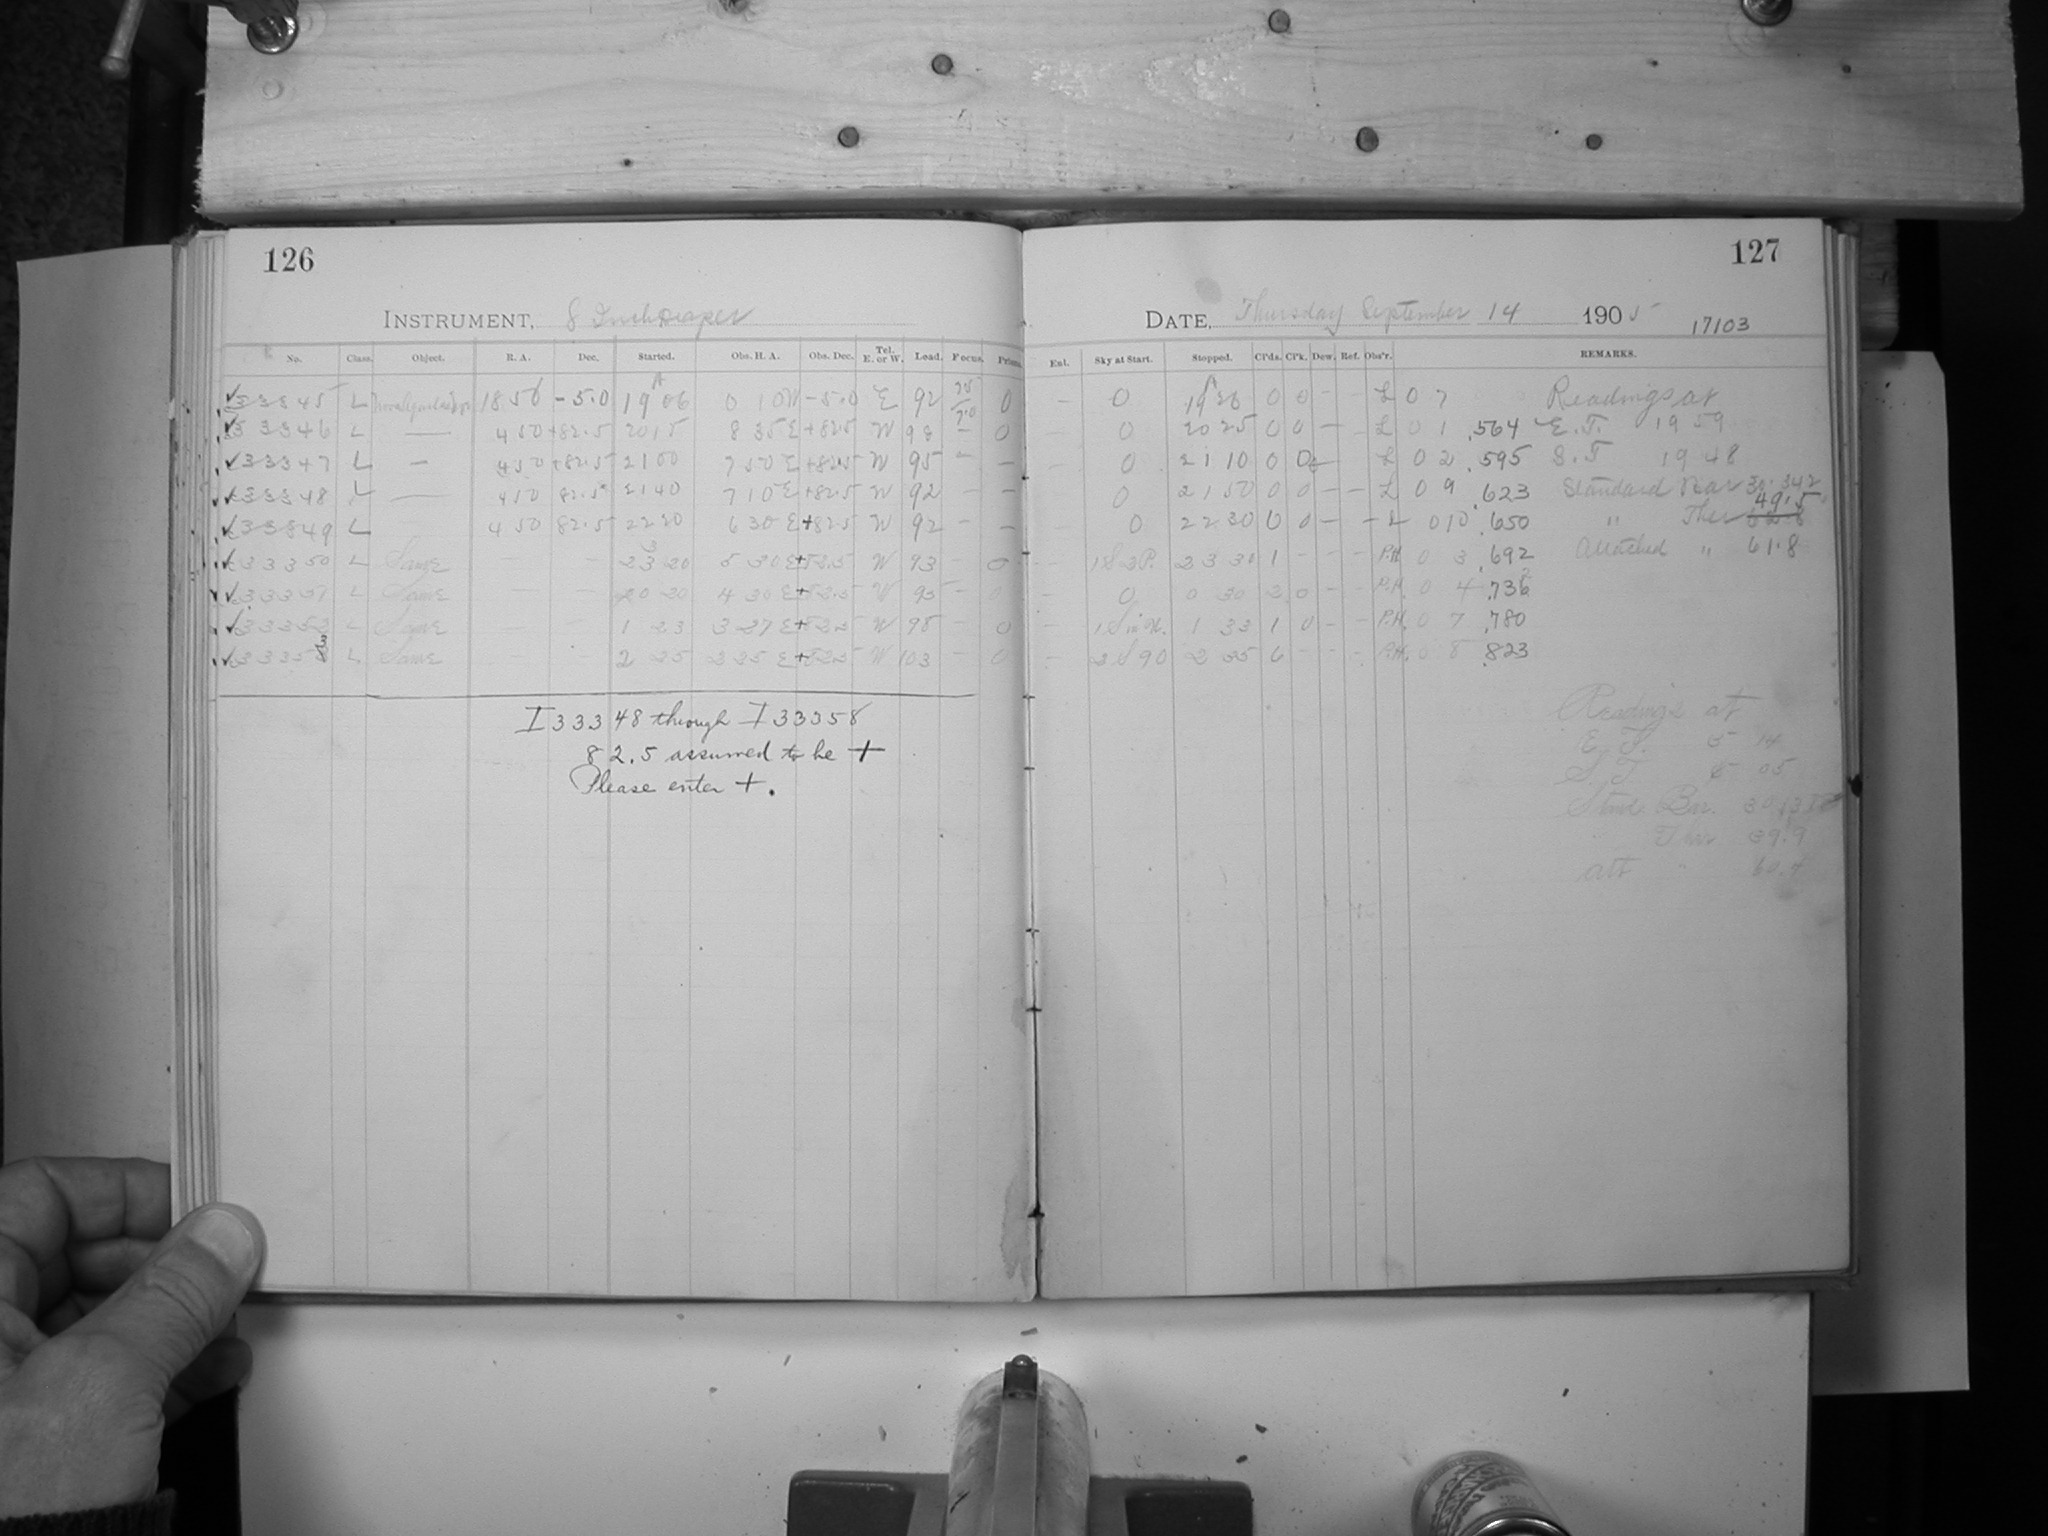 126
INSTRUMENT, 8 Inch Draper
No. Class. Object. R. A. Dec. Started. Obs. H. A. Obs. Dec. Tel. E. or W. Load. Focus. Prisms.
33345 L 18 56 -5.0 19 06 0 10 W -5.0 E 92 0
33346 L — 4 50 +82.5 20 15 8 35 E +82.5 W 93 — 0
33347 L — 4 50 +82.5 21 00 7 50 E +82.5 W 95 — —
33348 L — 4 50 82.5 21 40 7 10 E +82.5 W 92 — —
33349 L 4 50 82.5 22 20 6 30 E +82.5 W 92 — —
33350 L Same — — 23 20 5 30 E + W 93 — 0
33351 L Same — — 4 30 E + W 95 — 0
L Same — — 1 23 3 27 E + W 98 — 0
L Same — — 2 25 2 25 E + W 103 — 0
I 33348 through I 33358
82.5 assumed to be +
Please enter +.
127
DATE, Thursday September 14 1905
17103
Enl. Sky at Start. Stopped. Cl'ds. Cl'k. Dew. Ref. Obs'r. REMARKS.
— 0 19 26 0 0 — — L 0 7 Readings at
— 0 20 25 0 0 — — L 0 1 .564 E.T. 19 59
— 0 21 10 0 0 — L 0 2 .595 S.T 19 48
0 21 50 0 0 — — L 0 9 .623 Standard Bar 30.342
0 22 30 0 0 — — L 0 10 .650 " Ther 49.5
— 1 S 2 P. 23 30 1 — — — P.H. 0 3 .692 Attached " 61.8
— 0 0 30 2 0 — — P.H. 0 4 .736
— 1 33 1 0 — — P.H. 0 7 .780
— 2 35 6 — — — P.H. 0 8 .823
Readings at
E. T. 5 14
S. T 5 05
Stnd. Bar.
Ther 39.9
att " 60.4